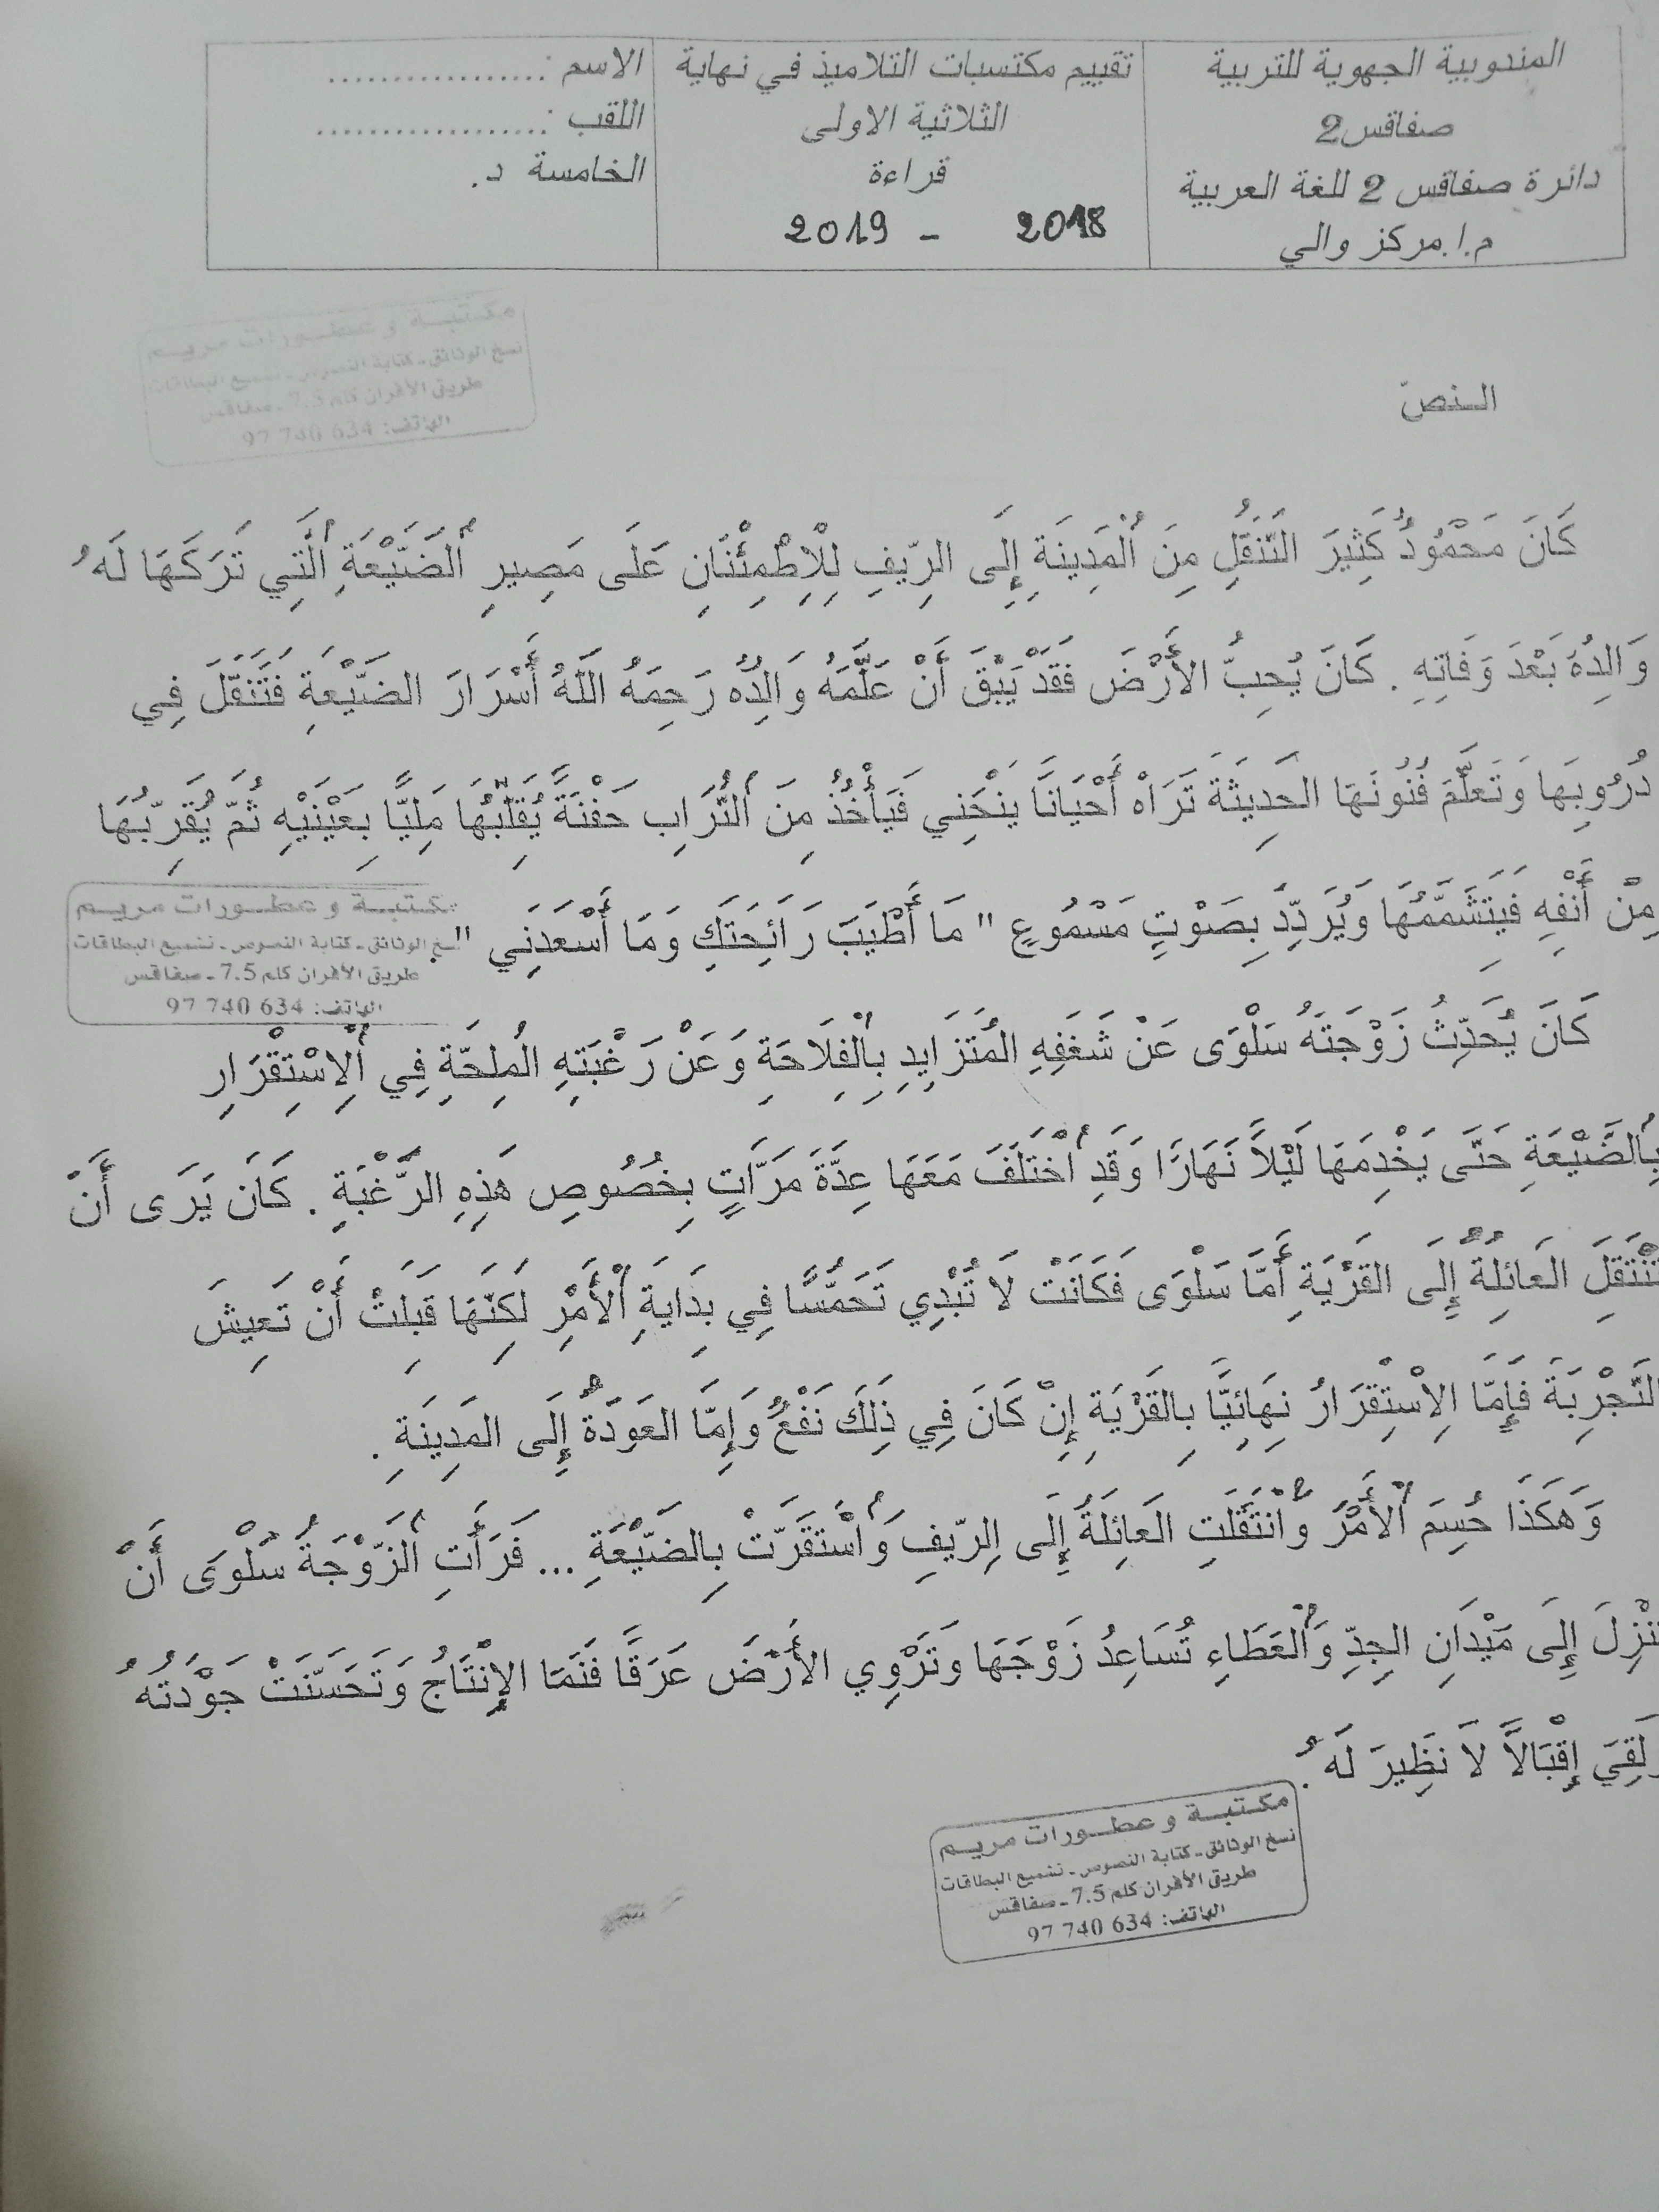 المندوبية الجهوية للتربية
صفاقس2
دائرة صفاقس 2 للغة العربية
م.ا.مركز والي
تقييم مكتسبات التلاميذ في نهاية
الثلاثية الاولى
قراءة
2018 - 2019
الاسم :.................
اللقب :..................
الخامسة د.
مكتبة وعطورات مريم
نسخ الوثائق - كتابة النصوص - تشميع البطاقات
طريق الأفران كلم 7.5 - صفاقس
الهاتف: 634 740 97
النصّ
كَانَ مَحْمُودٌ كَثِيرَ التَّنَقُلِ مِنَ اُلْمَدِينَةِ إِلَى الرِّيفِ لِلْاِطْمِئْنَانِ عَلَى مَصِيرِ اُلضَّيْعَةِ اُلَّتِي تَرَكَهَا لَهُ
وَالِدُهَ بَعْدَ وَفَاتِهِ . كَانَ يُحِبُّ الأَرْضَ فَقَدْ يَبْقَ أَنْ عَلَّمَهُ وَالِدُه رَحِمَهُ اللَّهُ أَسْرَارَ الضَّيْعَةِ فَتَنَقَّلَ فِي
دُرُوبِهَا وَتَعَلَّمَ فُنُونَهَا الحَدِيثَةَ تَرَاهْ أَحْيَانَا يَنْحَنِي فَيَأْخُذُ مِنَ اُلتُّرَابِ حَفْنَةً يُقَلِّبُهَا مَلِيًّا بِعَيْنَيْهِ ثُمَّ يُقَرِّبُهَا
مِنْ أَنْفِهِ فَيَتَشَمَّمُهَا وَيُرَدِّدُ بِصَوْتٍ مَسْمُوعٍ " مَا أَطْيَبَ رَائِحَتَكِ وَمَا أَسْعَدَنِي ".
مكتبة وعطورات مريم
نسخ الوثائق - كتابة النصوص - تشميع البطاقات
طريق الأفران كلم 7.5 - صفاقس
الهاتف: 634 740 97
كَانَ يُحَدِّثُ زَوْجَتَهُ سَلْوَى عَنْ شَغَفِهِ المُتَزَايِدِ بِاُلْفِلَاحَةِ وَعَنْ رَغْبَتِهِ المُلِحَّةِ فِي اُلِاسْتِقْرَارِ
بِاُلضَّيْعَةِ حَتَّى يَخْدِمَهَا لَيْلاً نَهَارًا وَقَدِ اُخْتَلَفَ مَعَهَا عِدَّةَ مَرَّاتٍ بِخُصُوصِ هَذِهِ الرَّغْبَةِ . كَانَ يَرَى أَنْ
تَنْتَقِلَ العَائِلَةُ إِلَى القَرْيَةِ أَمَّا سَلْوَى فَكَانَتْ لَا تُبْدِي تَحَمُّسًا فِي بِدَايَةِ اُلْأَمْرِ لَكِنَّهَا قَبِلَتْ أَنْ تَعِيشَ
التَّجْرِبَةَ فَإِمَّا الِاسْتِقْرَارُ نِهَائِيَّا بِالقَرْيَةِ إِنْ كَانَ فِي ذَلِكَ نَفْعٌ وَإِمَّا العَوْدَةُ إِلَى المَدِينَةِ .
وَهَكَذَا حُسِمَ اُلأَمْرُ وَاُنْتَقَلَتِ العَائِلَةُ إِلَى الرِّيفِ وَاُسْتَقَرَّتْ بِالضَّيْعَةِ ... فَرَأَتِ اُلزَّوْجَةُ سَلْوَى أَنْ
تَنْزِلَ إِلَى مَيْدَانِ الجِدِّ وَاُلْعَطَاءِ تُسَاعِدُ زَوْجَهَا وَتَرْوِي الأَرْضَ عَرَقًا فَنَمَا الإِنْتَاجُ وَتَحَسَّنَتْ جَوْدَتُهُ
وَلَقِيَ إِقْبَالاً لاَ نَظِيرَ لَهُ .
مكتبة وعطورات مريم
نسخ الوثائق - كتابة النصوص - تشميع البطاقات
طريق الأفران كلم 7.5 - صفاقس
الهاتف: 634 740 97